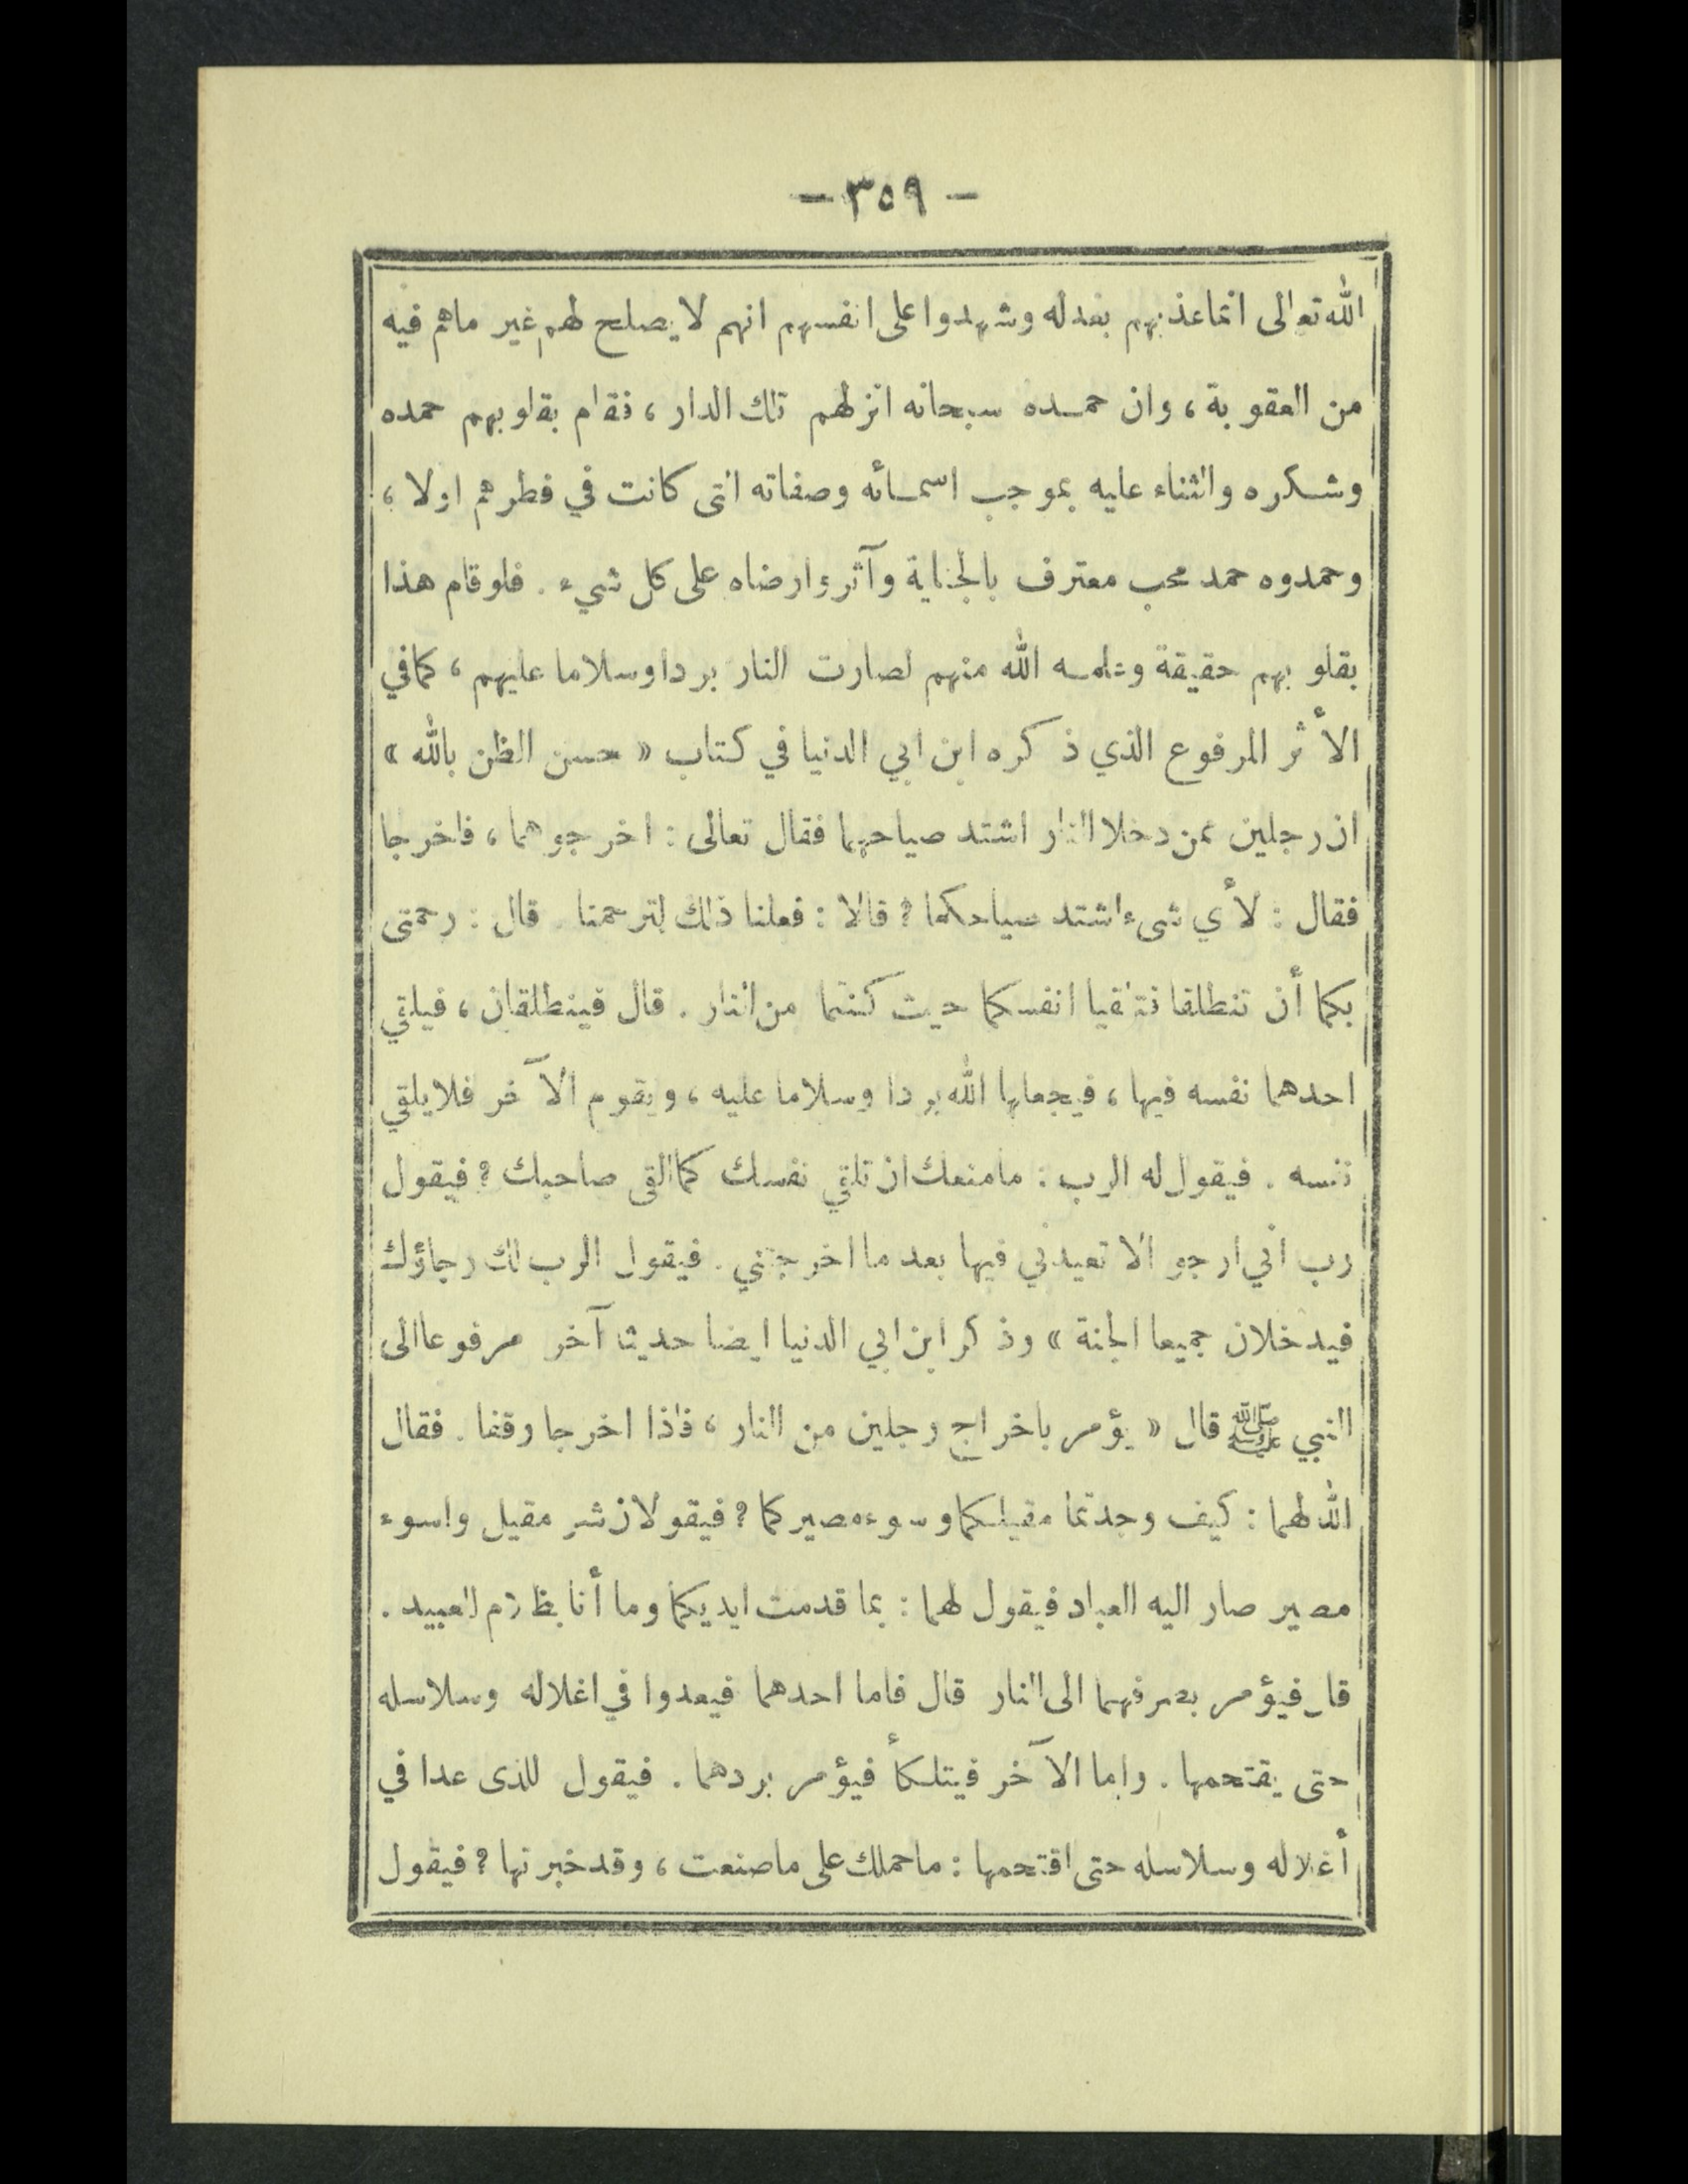 - ٣٥٩ -
الله تعالى انما عذبهم بعدله وشهدوا على انفسهم انهم لا يصلح لهم غير ماهم فيه
من العقوبة ، وان حمده سبحانه انزلهم تلك الدار ، فقام بقلوبهم حمده
وشكره والثناء عليه بموجب اسمائه وصفاته التى كانت في فطرهم اولا ،
وحمدوه حمد محب معترف بالجناية وآثروا رضاه على كل شيء . فلو قام هذا
بقلوبهم حقيقة وعلمه الله منهم لصارت النار بردا وسلاما عليهم ، كما في
الأثر المرفوع الذي ذكره ابن ابي الدنيا في كتاب « حسن الظن بالله »
ان رجلين ممن دخلا النار اشتد صياحهما فقال تعالى : اخرجوهما ، فاخرجا
فقال : لأي شىء اشتد صياحكما ؟ قالا : فعلنا ذلك لترحمنا . قال : رحمتى
بكما أن تنطلقا فتلقيا انفسكما حيث كنتما من النار . قال فينطلقان ، فيلقي
احدهما نفسه فيها ، فيجعلها الله بردا وسلاما عليه ، ويقوم الآخر فلا يلقي
نفسه . فيقول له الرب : مامنعك ان تلقي نفسك كما القى صاحبك ؟ فيقول
رب اني ارجو الا تعيدني فيها بعد ما اخرجتني . فيقول الرب لك رجاؤك
فيدخلان جميعا الجنة » وذكر ابن ابي الدنيا ايضا حديثا آخر مرفوعا الى
النبي ﷺ قال « يؤمر باخراج رجلين من النار ، فاذا اخرجا وقفا . فقال
الله لهما : كيف وجدتما مقيلكما وسوء مصيركما ؟ فيقولان شر مقيل واسوء
مصير صار اليه العباد فيقول لهما : بما قدمت ايديكما وما أنا بظلام للعبيد .
قال فيؤمر بصرفهما الى النار قال فاما احدهما فيعدوا في اغلاله وسلاسله
حتى يقتحمها . واما الآخر فيتلكأ فيؤمر بردهما . فيقول للذى عدا في
أغلاله وسلاسله حتى اقتحمها : ماحملك على ماصنعت ، وقد خبرتها ؟ فيقول